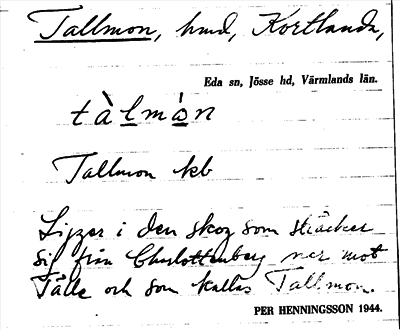 Tallmon, hmd, Kortlanda,
Eda sn, Jösse hd, Värmlands län.
tàlmån
Tallmon kb
Ligger i den skog som sträcker
sig från Charlottenberg ner mot
och som kallas Tallmon.
PER HENNINGSSON 1944.